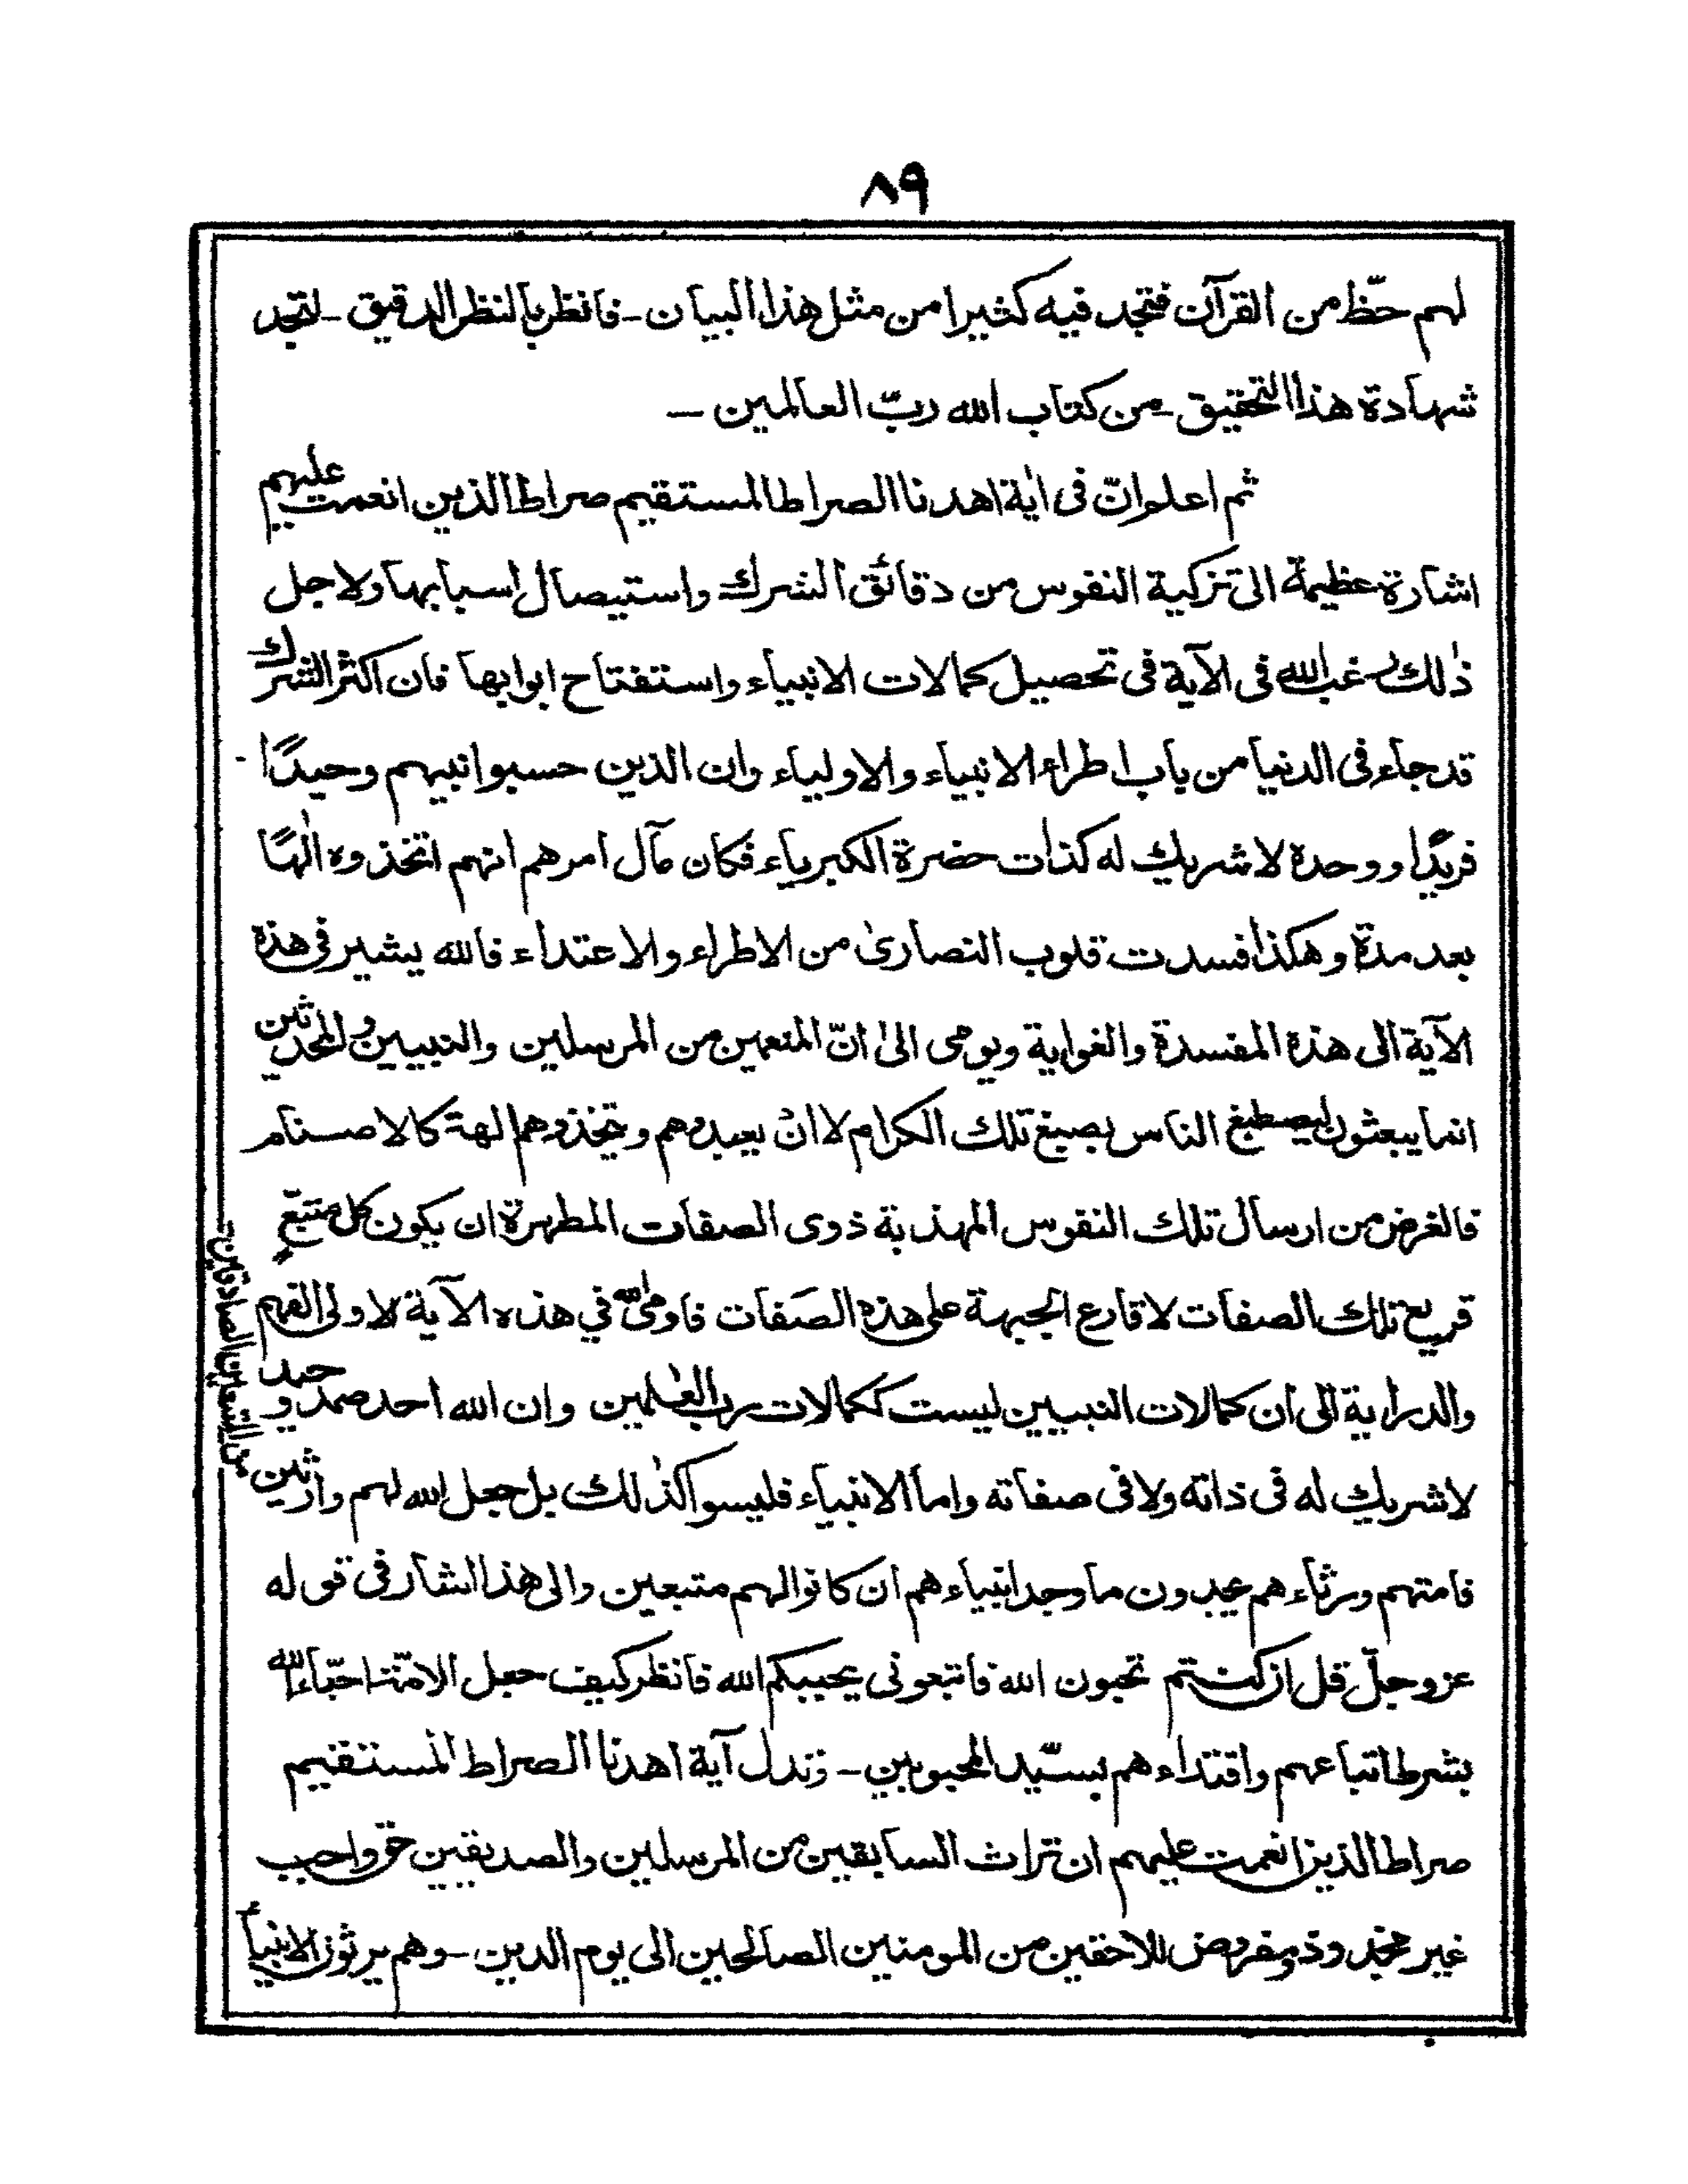 ٨٩
لهم حظّ من القرآن فتجد فيه كثيرا من مثل هذا البيان ـ فانظر بالنظر الدقيق ـ لتجد
شهادة هذا التحقيق ـ من كتاب الله ربّ العالمين ـ
ثم اعلموا انّ فى اٰية اهدنا الصراط المستقيم صراط الذين انعمت عليهم
اشارة عظيمة الى تزكية النفوس من دقائق الشرك واستيصال اسبابها ولاجل
ذٰلك رغب الله فى الآية فى تحصيل كمالات الانبياء واستفتاح ابوابها فان اكثر الشرك
قد جاء فى الدنيا من باب اطراء الانبياء والاولياء وان الذين حسبوا نبيهم وحيدًا
فريدًا ووحده لا شريك له كذات حضرة الكبرياء فكان مآل امرهم انهم اتخذوه الٰهًا
بعد مدّة وهكذا فسدت قلوب النصارىٰ من الاطراء والاعتداء فالله يشير فى هذه
الآية الى هذه المفسدة والغواية ويومى الىٰ انّ المنعمين من المرسلين والنبيين والمحدثين
انما يبعثون ليصطبغ الناس بصبغ تلك الكرام لا انْ يعبدوهم ويتخذوهم الهة كالاصنام
فالغرض من ارسال تلك النفوس المهذبة ذوى الصفات المطهرة ان يكون كل متبّع
قريع تلك الصفات لا قارع الجبهة على هذه الصَفات فاومىٰ الله في هذه الآية لاولى الفهم
والدراية الى ان كمالات النبيين ليست ككمالات رب العٰلمين وان الله احد صمد وحيد
لا شريك له فى ذاته ولا فى صفاته واما الانبياء فليسوا كذٰلك بل جعل الله لهم وارثين
من المتبعين الصادقين ـ
فامتهم ورثاءهم يجدون ما وجد انبياءهم ان كانوا لهم متبعين والى هذا اشار فى قوله
عز وجلّ قل ان كنتم تحبون الله فاتبعونى يحببكم الله فانظر كيف جعل الامّة احبّاء الله
بشرط اتباعهم واقتداءهم بسيّد المحبوبين ـ وتدل آية اهدنا الصراط المستقيم
صراط الذين انعمت عليهم ان تراث السابقين من المرسلين والصديقين حق واجب
غير مجذوذ ومفروض للاحقين من المومنين الصالحين الى يوم الدين ـ وهم يرثون الانبياء